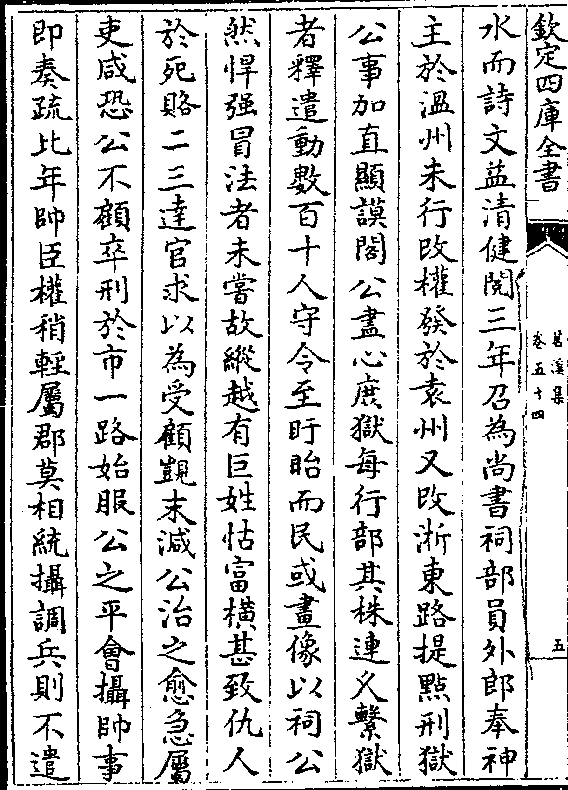 欽定四庫全書
苕溪集
卷五十四
五
水而詩文益清健閱三年召為尚書祠部員外郎奉神
主於溫州未行改權發於袁州又改浙東路提點刑獄
公事加直顯謨閣公盡心庶獄每行部其株連久繫獄
者釋遣動數百十人守令至盱眙而民或畫像以祠公
然悍强冒法者未嘗故縱越有巨姓怙富橫甚致仇人
於死賂二三達官求以為受顧覬末減公治之愈急屬
吏咸恐公不顧卒刑於市一路始服公之平會攝帥事
即奏疏比年帥臣權稍輕屬郡莫相統攝調兵則不遣